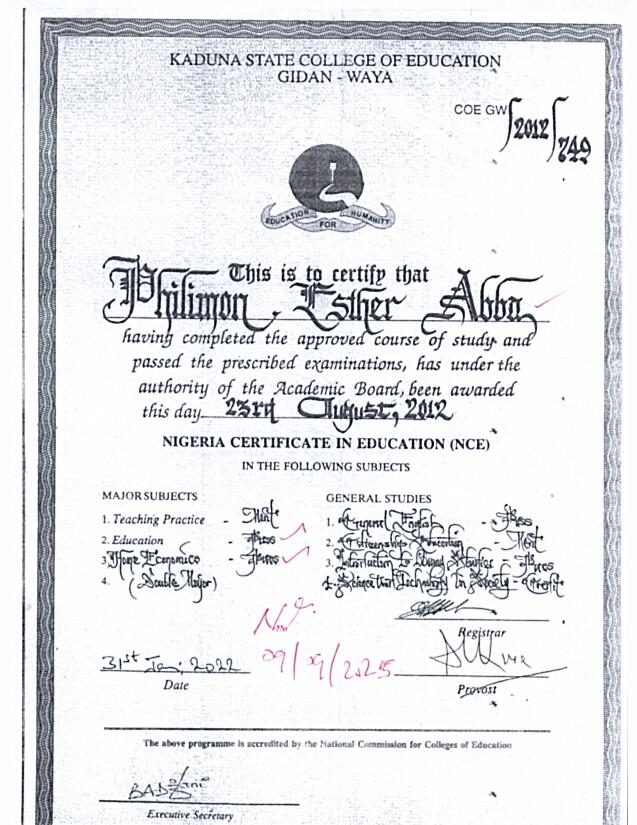 KADUNA STATE COLLEGE OF EDUCATION
GIDAN - WAYA
COE GW/2012/749
EDUCATION FOR HUMANITY
This is to certify that
Philimon, Esther Abba
having completed the approved course of study and
passed the prescribed examinations, has under the
authority of the Academic Board, been awarded
this day 23rd August, 2012
NIGERIA CERTIFICATE IN EDUCATION (NCE)
IN THE FOLLOWING SUBJECTS
MAJOR SUBJECTS
1. Teaching Practice - Merit
2. Education - Pass
3. Home Economics -
4. (Double Major)
GENERAL STUDIES
1. General English - Pass
2. Citizenship Education - Merit
3. Introduction to
4. Science and Technology in Society - Credit
Registrar
31st Jan; 2022
Date
09/09/2025
Provost
The above programme is accredited by the National Commission for Colleges of Education
Executive Secretary